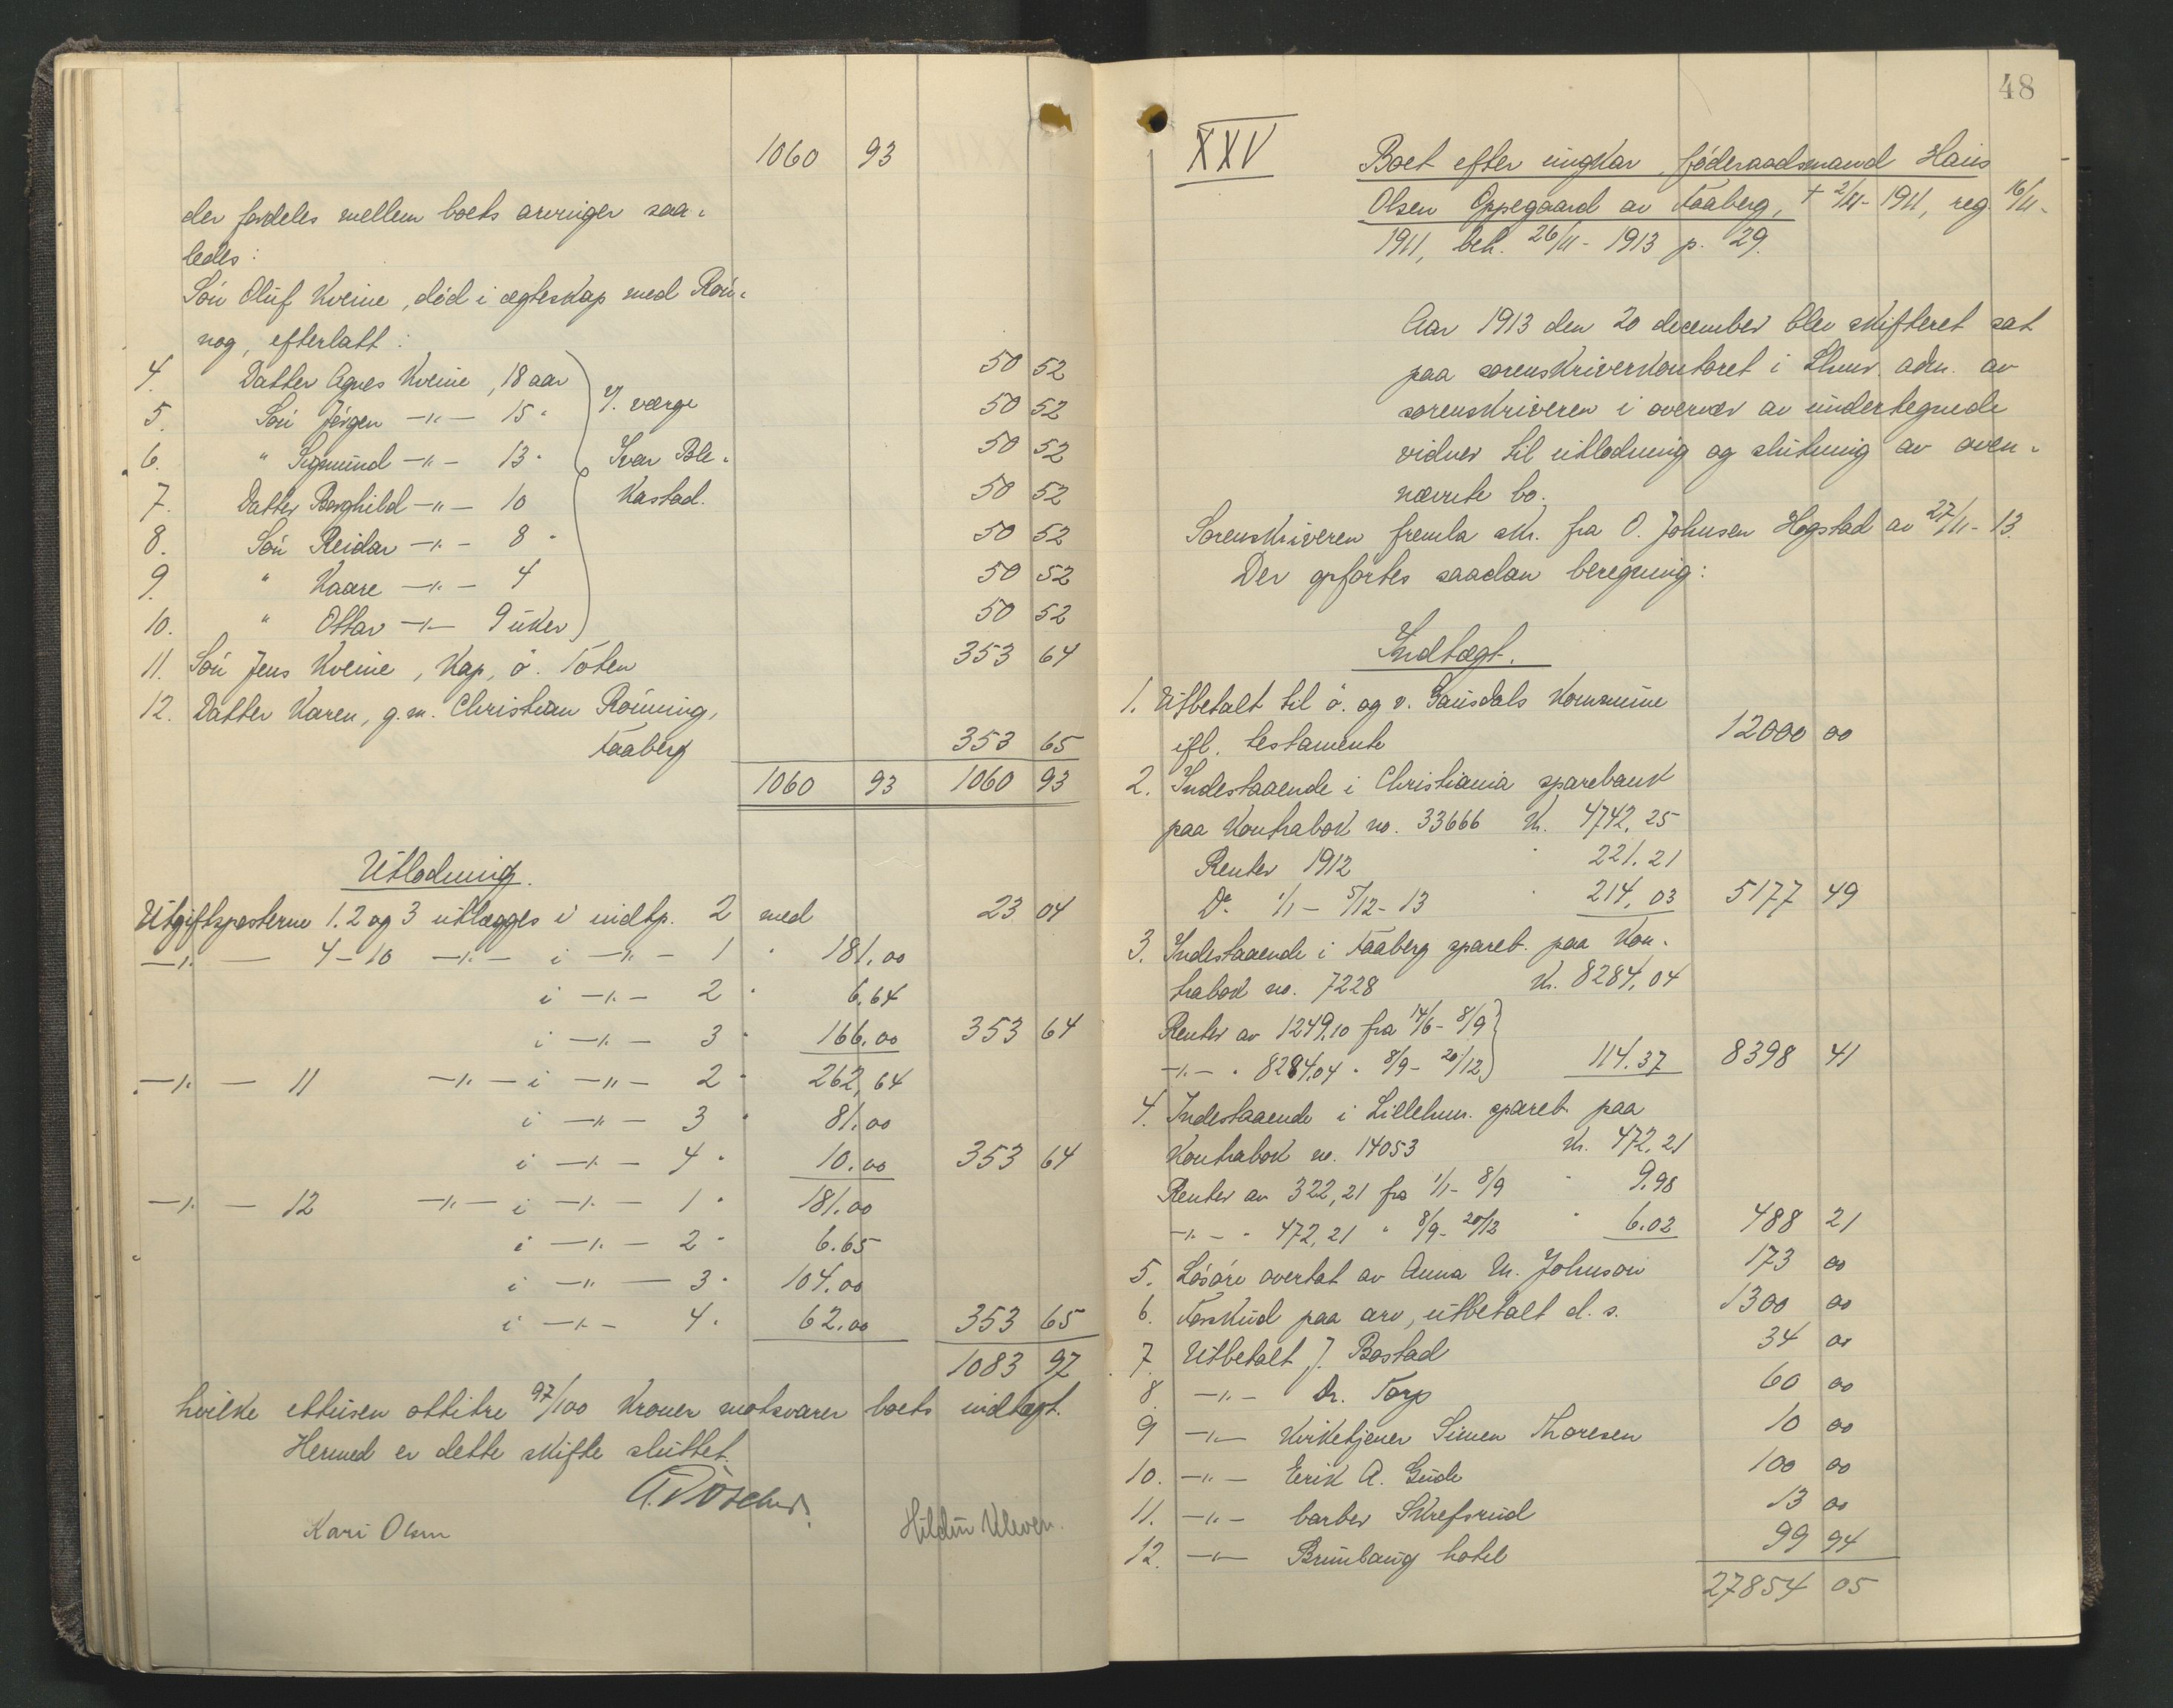 1060 93
der fordeles mellem boets arvinger saa-
ledes:
Sön Oluf Kveine, död i egteskap med Rön-
nog, efterlatt:
4. Datter Agnes Kveine, 18 aar 50 52
5. Sön Jörgen —"— 15 " f. værge 50 52
6. " Sigmund —"— 13 " Ivar Ble- 50 52
7. Datter Borghild —"— 10 kastad. 50 52
8. Sön Reidar —"— 8 " 50 52
9. " Kaare —"— 4 50 52
10. " Ottar —"— 9 uker 50 52
11. Sön Jens Kveine, Kap, ö. Toten 353 64
12. Datter Karen, g.m. Christian Rönning,
Faaberg 353 65
1060 93 1060 93
Utlodning.
Utgiftsposterne 1. 2 og 3 utlægges i indtp. 2 med 23 04
—"— 4-10 —"— i —"— 1 " 181.00
i —"— 2 " 6.64
i —"— 3 " 166.00 353 64
—"— 11 —"— i —"— 2 " 262,64
i —"— 3 " 81.00
i —"— 4 " 10.00 353 64
—"— 12 —"— i —"— 1 " 181.00
i —"— 2 " 6.65
i —"— 3 " 104.00
i —"— 4 " 62.00 353 65
1083 97
hvilke ettusen ottitre 97/100 kroner motsvarer boets indtægt.
Hermed er dette skifte sluttet.
Kari Olsen Hildur Kleven.
48
XXV Boet efter ungkar, föderaadsmand Hans
Olsen Oppegaard av Faaberg, † 2/11-1911, reg. 16/11-
1911, beh. 26/11-1913 p. 29.
Aar 1913 den 20 december blev skifteret sat
paa sorenskriverkontoret i Lhmr. adm. av
sorenskriveren i overvær av undertegnede
vidner til utlodning og slutning av oven-
nævnte bo.
Sorenskriveren fremla skr. fra O. Johnsen Hogstad av 27/11-13.
Der opförtes saadan beregning:
Indtægt.
1. Utbetalt til ö. og v. Gausdals kommune
ifl. testamente 12000 00
2. Indestaaende i Christiania sparebank
paa kontrabok no. 33666 Kr. 4742,25
Renter 1912 " 221.21
Do 1/1 - 5/12-13 " 214.03 5177 49
3. Indestaaende i Faaberg spareb. paa kon-
trabok no. 7228 Kr. 8284,04
Renter av 1249,10 fra 14/6 - 8/9
—"— " 8284,04 " 8/9 - 20/12 114.37 8398 41
4. Indestaaende i Lillehmr. spareb. paa
kontrabok no. 14053 Kr. 472,21
Renter av 322,21 fra 1/1 - 8/9 " 9,98
—"— " 472,21 " 8/9 - 20/12 " 6.02 488 21
5. Lösöre overtat av Anna M. Johnson 173 00
6. Forskud paa arv, utbetalt d. s. 1300 00
7. Utbetalt J. Bostad 34 00
8 —"— Dr. Torp 60 00
9 —"— Kirketjener Simen Thoresen 10 00
10. —"— Eerik A. Gude 100 00
11. —"— barber Skrefsrud 13 00
12. —"— Brunlaug hotel 99 94
27854 05